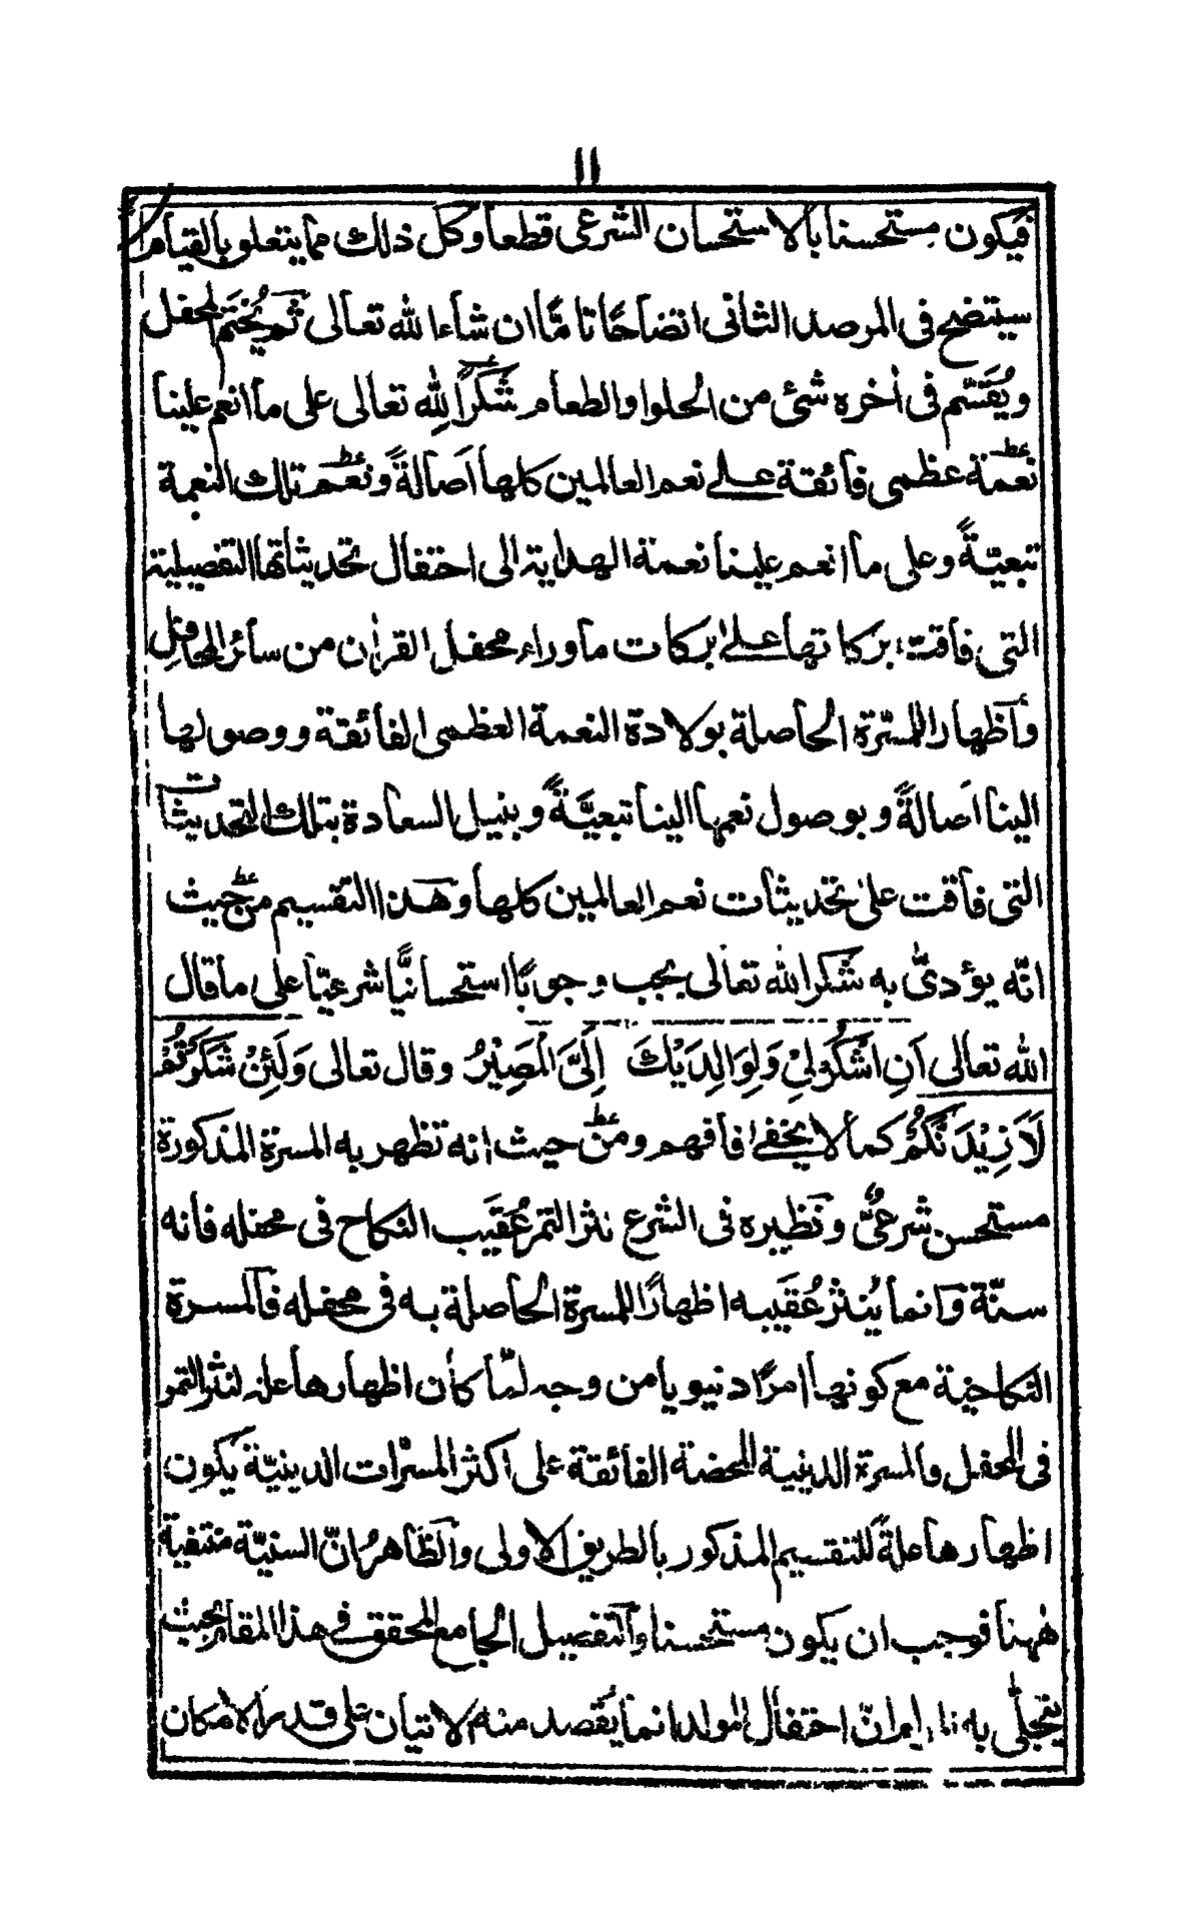 ١١
فيكون مستحسنا بالاستحسان الشرعى قطعا وكل ذلك مما يتعلق بالقيام
سيتضح فى المرصد الثانى اتضاحًا تامًّا ان شاء الله تعالى ثم يُختَم المحفل
ويُقَسَّم فى اٰخره شئ من الحلوا والطعام شكرًا لِلّٰه تعالى على ما انعم علينا
نعمة عظمى فائقة على نعم العالمين كلها اَصالةً ونعم تلك النعمة
تبعيّةً وعلى ما انعم علينا نعمة الهداية الى احتفال تحديثاتها التفصيلية
التى فاقت بركاتها على بركات ما وراء محفل القراٰن من سائر المحافل
واظهارا للمسّرة الحاصلة بولادة النعمة العظمى الفائقة ووصولها
الينا اَصالةً وبوصول نعمها الينا تبعيَّةً وبنيل السعادة بتلك التحديثات
التى فاقت على تحديثات نعم العالمين كلها وهذا التقسيم من حيث
انّه يؤدىّ به شكر الله تعالى يجب وجوبًا استحسانيًّا شرعيّا على ما قال
الله تعالى اَنِ اشْكُرْ لِىْ وَلِوَالِدَيْكَ اِلَىَّ الْمَصِيْرُ وقال تعالى وَلَئِنْ شَكَرْتُمْ
لَاَزِيْدَنَّكُمْ كما لا يخفى فافهم ومن حيث انه تظهر به المسرة المذكورة
مستحسن شرعىٌّ ونظيره فى الشرع نثر التمر عُقَيب النكاح فى محفله فانه
سنّة وانما يُنثر عُقَيبه اظهارًا للمسرة الحاصلة به فى محفله فالمسرة
النكاحية مع كونها امرًا دنيويا من وجه لمّا كان اظهارها علة لنثر التمر
فى المحفل والمسرة الدينية المحضة الفائقة على اكثر المسرّات الدينيّة يكون
اظهارها علةً للتقسيم المذكور بالطريق الاولى والظاهرُ انّ السنيّة منتفية
هٰهنا فوجب ان يكون مستحسنا والتفصيل الجامع المحقق فى هذا المقام بحيث
يتجلّى به انّ احتفال المولد انما يقصد منه الاتيان على قدر الامكان